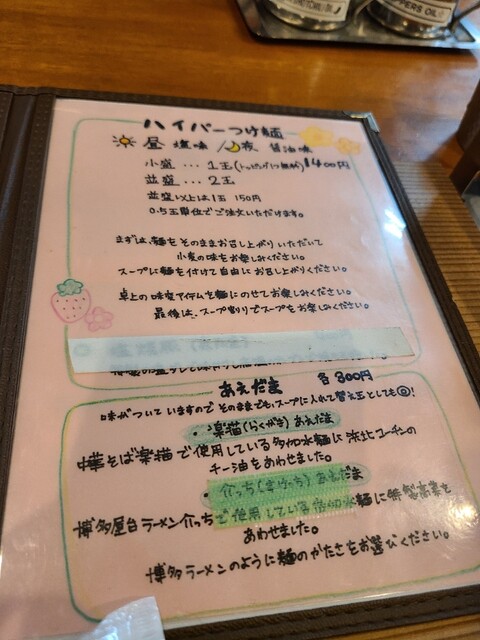 PERS OIL
ハイパーつけ麺
昼 塩味 / 夜 醤油味
小盛 … 1玉(トッピング1つ無料) ¥1400円
並盛 … 2玉
並盛以上は1玉 150円
0.5玉単位でご注文いただけます。
まずは、麺をそのままお召し上がりいただいて
小麦の味をお楽しみください。
スープに麺を付けて自由にお召し上がりください。
卓上の味変アイテムを麺にのせてお楽しみください。
最後は、スープ割りでスープをお楽しみください。
あえだま 各300円
味がついていますのでそのままでもスープに入れて替え玉としても◎!
・楽猫(らくがき)あえだま
中華そば楽猫で使用している多加水麺に
チー油をあわせました。
・介っち(すけっち)あえだま
博多屋台ラーメン介っちで使用している低加水麺に
あわせました。
博多ラーメンのように麺のかたさをお選びください。